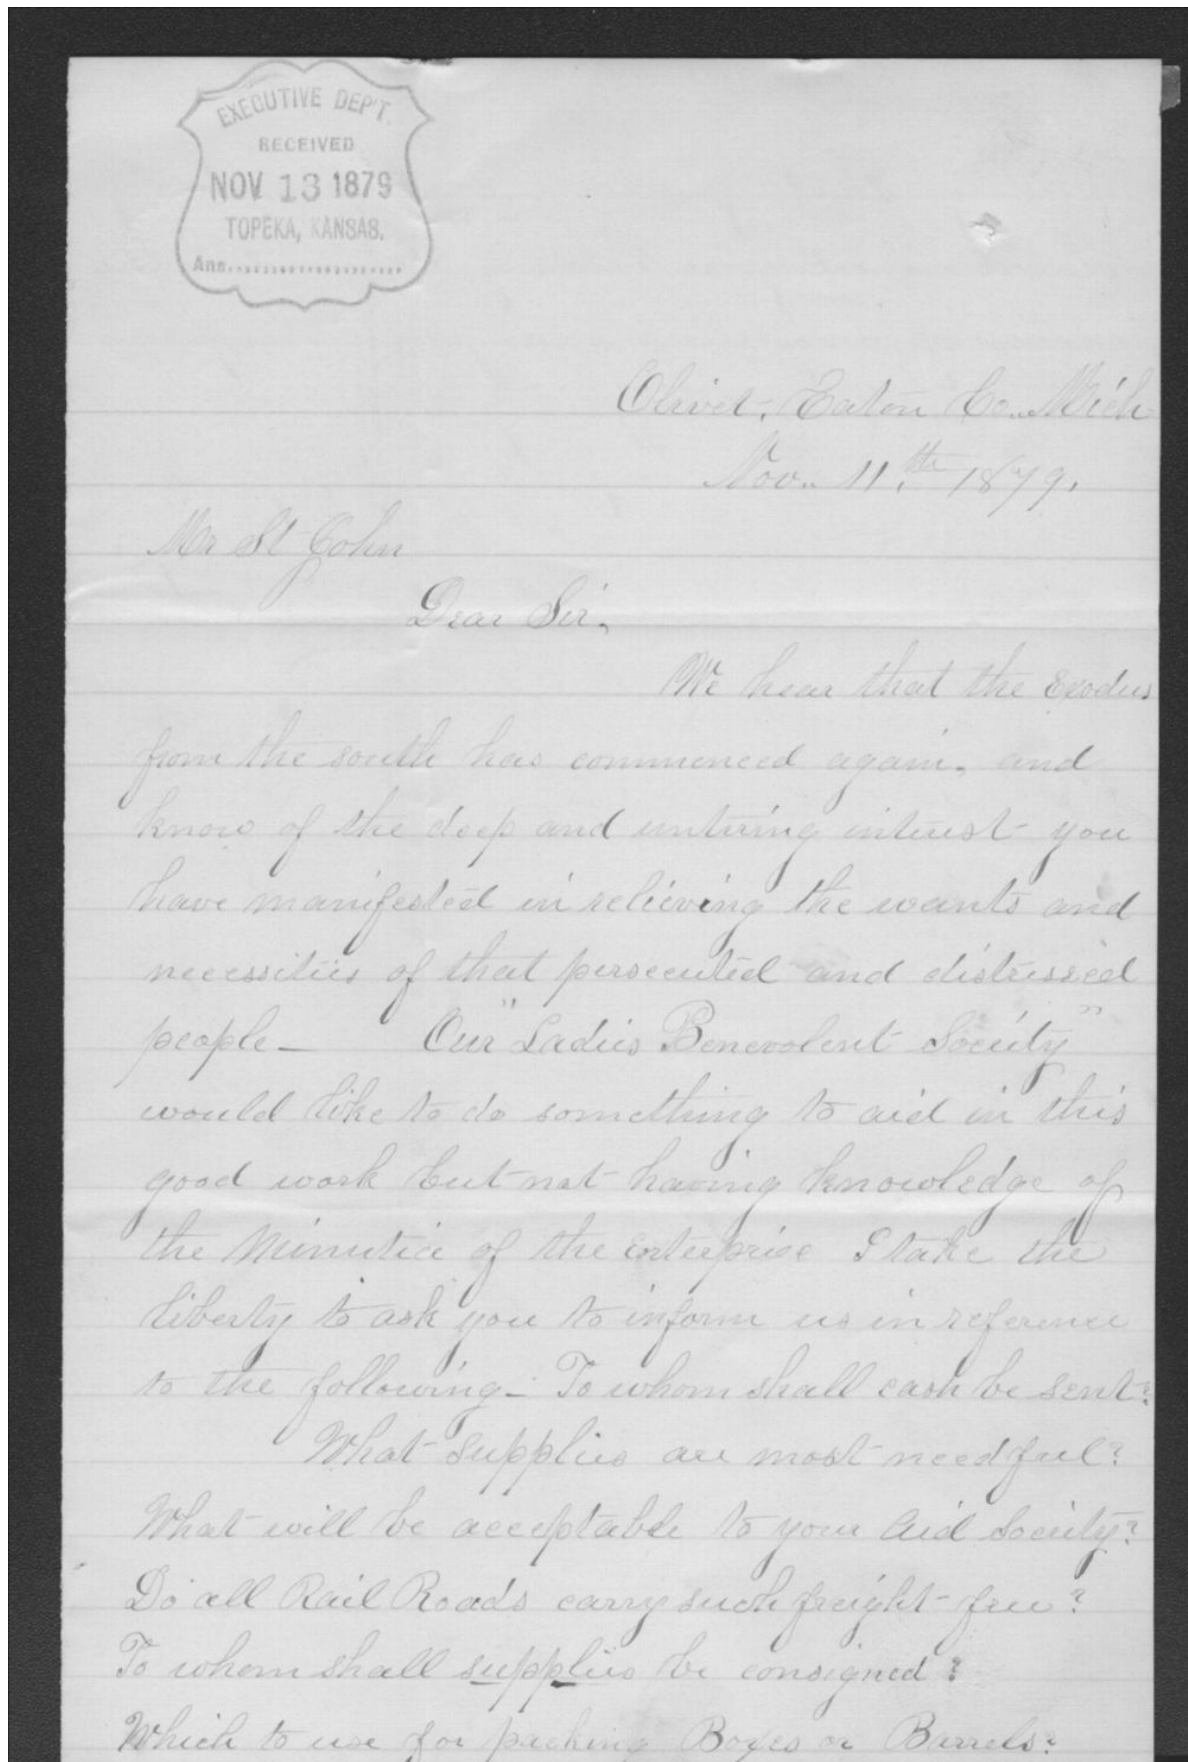 EXECUTIVE DEP'T.
RECEIVED
NOV 13 1879
TOPEKA, KANSAS.
Ans.....................
Olivet, Eaton Co. Mich
Nov. 11th 1879.
Mr St John
Dear Sir,
We hear that the Exodus
from the south has commenced again, and
know of the deep and untiring interest you
have manifested in relieving the wants and
necessities of that persecuted and distressed
people – Our "Ladies Benevolent Society"
would like to do something to aid in this
good work but not having knowledge of
the Minutia of the enterprise I take the
liberty to ask you to inform us in reference
to the following – To whom shall cash be sent?
What supplies are most needful?
What will be acceptable to your Aid Society?
Do all Rail Roads carry such freight free?
To whom shall supplies be consigned?
Which to use for packing Boxes or Barrels?